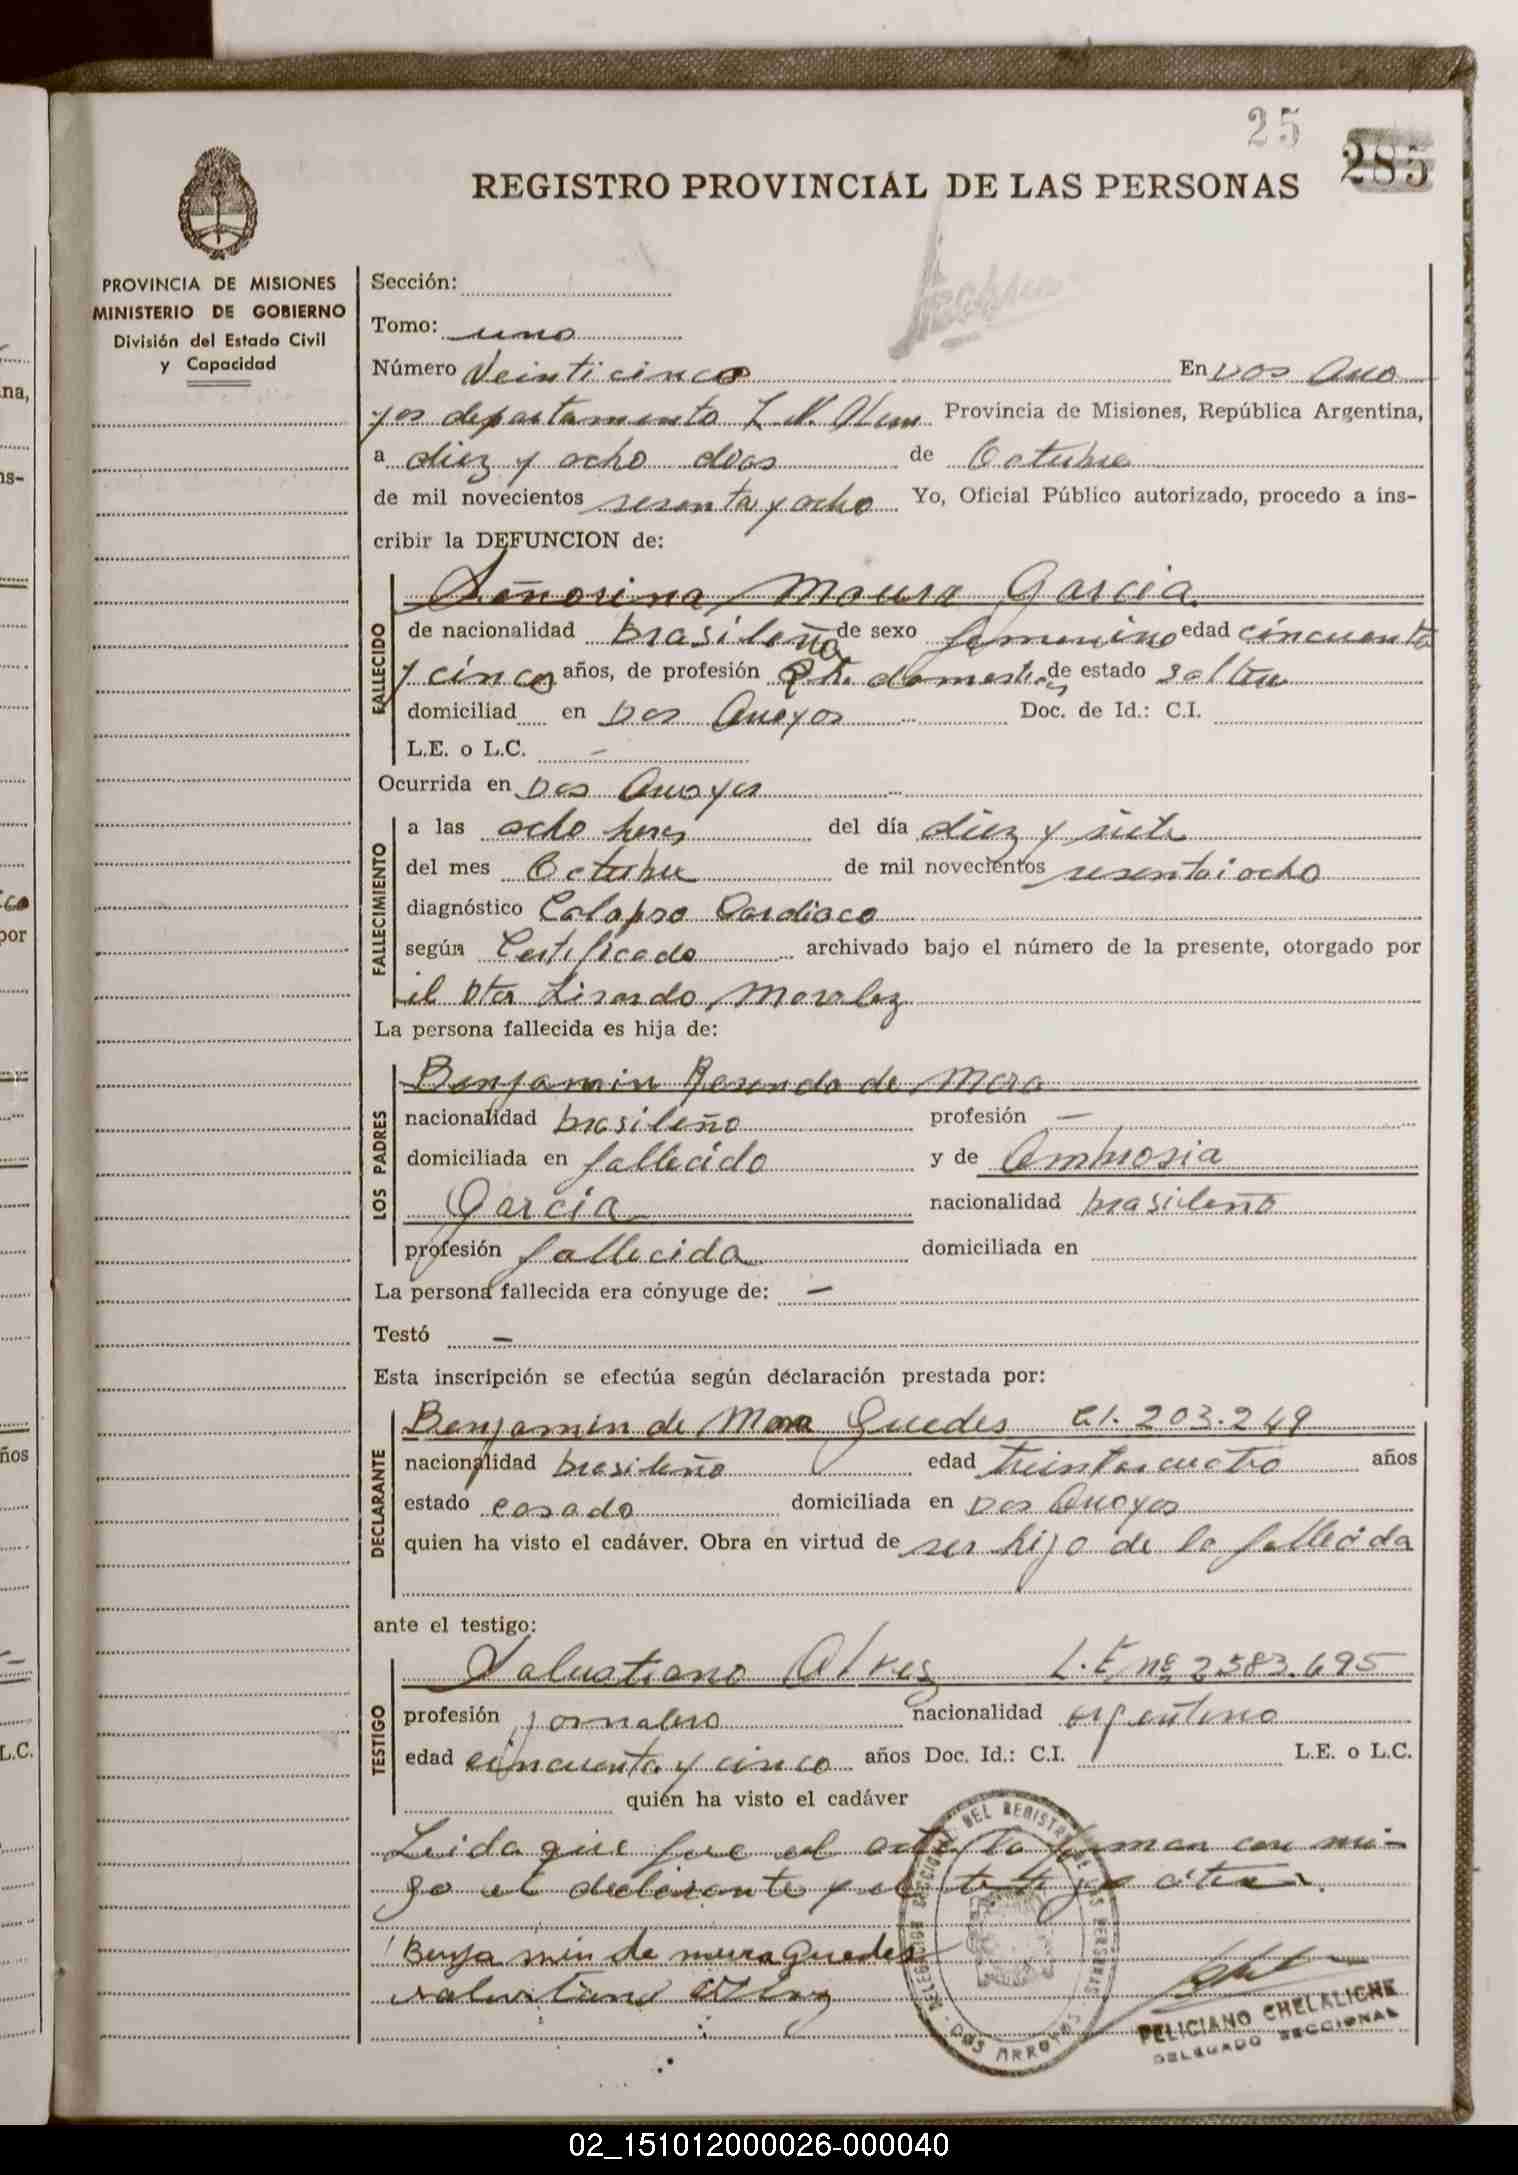 25
285
REGISTRO PROVINCIAL DE LAS PERSONAS
PROVINCIA DE MISIONES
MINISTERIO DE GOBIERNO
División del Estado Civil
y Capacidad
Sección:
Tomo: uno
Número Veinticinco En Dos Arro
yos departamento L. N. Alem Provincia de Misiones, República Argentina,
a diez y ocho dias de Octubre
de mil novecientos sesenta y ocho Yo, Oficial Público autorizado, procedo a ins-
cribir la DEFUNCION de:
Señorina Moura Garcia
FALLECIDO
de nacionalidad brasileña de sexo femenino edad cincuenta
y cinco años, de profesión domesticos de estado soltera
domiciliad en Dos Arroyos Doc. de Id.: C.I.
L.E. o L.C. -
Ocurrida en Dos Arroyos
FALLECIMIENTO
a las ocho horas del día diez y siete
del mes Octubre de mil novecientos sesentaiocho
diagnóstico Colapso Cardiaco
según Certificado archivado bajo el número de la presente, otorgado por
el Dtor Lisardo Moralez
La persona fallecida es hija de:
LOS PADRES
Benjamin Rosendo de Mora
nacionalidad brasileño profesión —
domiciliada en fallecido y de Ambrosia
Garcia nacionalidad brasileño
profesión fallecida domiciliada en
La persona fallecida era cónyuge de: —
Testó —
Esta inscripción se efectúa según declaración prestada por:
DECLARANTE
Benjamin de Mora Guedes C.I. 203.249
nacionalidad brasileño edad treintaicuatro años
estado casado domiciliada en Dos Arroyos
quien ha visto el cadáver. Obra en virtud de ser hijo de la fallecida
ante el testigo:
TESTIGO
Salustiano Alvez L.E. nº 2.583.695
profesión jornalero nacionalidad argentino
edad cincuenta y cinco años Doc. Id.: C.I. L.E. o L.C.
quién ha visto el cadáver
Leida que fue el acta la firman con mi-
go el declarante y el testigo
Benja min de moura guedes
salustiano alvez
DELEGACION SECCIONAL DEL REGISTRO DE LAS PERSONAS
DOS ARROYOS
FELICIANO CHELALICHE
DELEGADO SECCIONAL
02_151012000026-000040